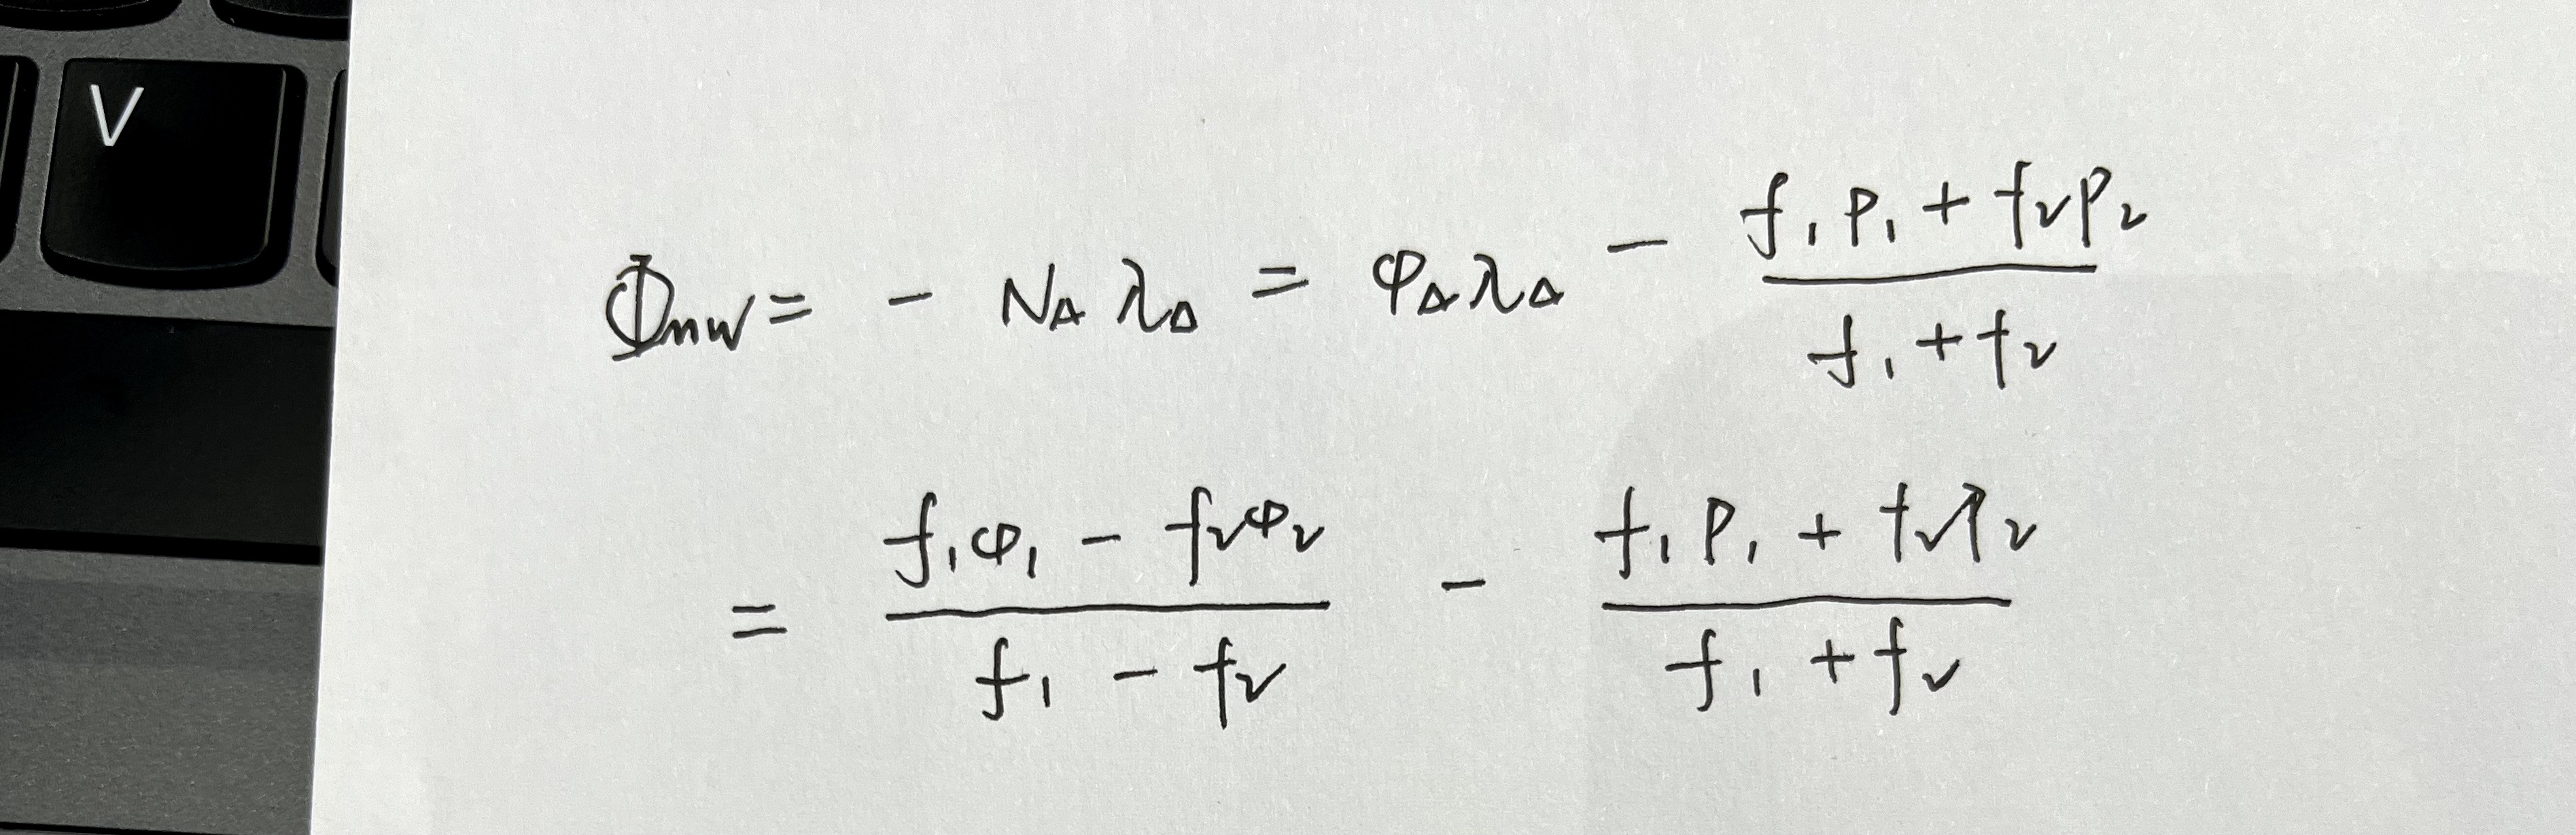 V
Φ_{MW} = - N_Δ λ_Δ = φ_Δ λ_Δ - \frac{f_1 P_1 + f_2 P_2}{f_1 + f_2}
= \frac{f_1 φ_1 - f_2 φ_2}{f_1 - f_2} - \frac{f_1 P_1 + f_2 P_2}{f_1 + f_2}